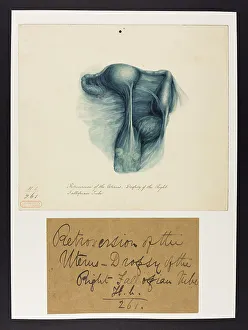 Retroversion of the Uterus. Dropsy of the Right
Fallopian Tube.
H.C.
261.
Retroversion of the
Uterus - Dropsy of the
Right Fallopian Tube
H.C.
261.